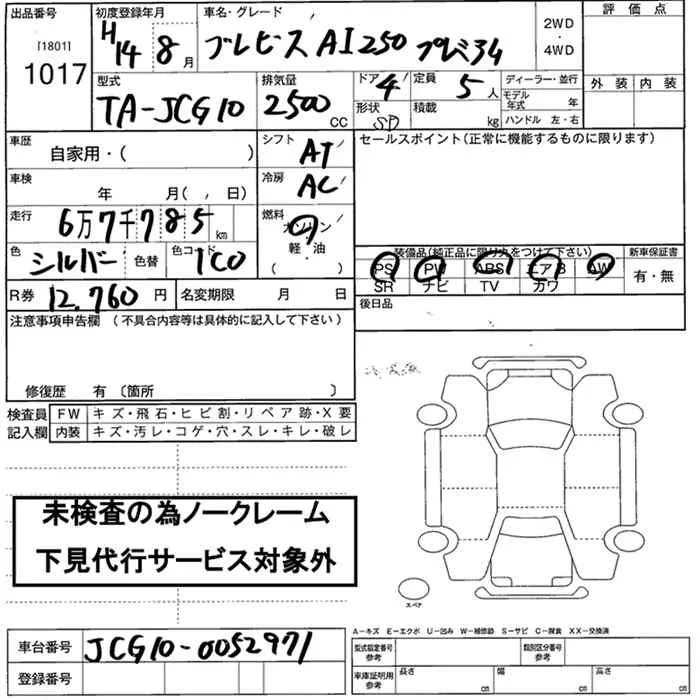 出品番号
[1801]
1017
初度登録年月
H14 8 月
車名・グレード
ブレビス AI250 プレミ34
2WD
・
4WD
評価点
外装 内装
型式
TA-JCG10
排気量
2500 CC
ドア 4
形状 SD
定員 5 人
積載 kg
ディーラー・並行
モデル年式 年
ハンドル 左・右
車歴
自家用・( )
シフト AT
冷房 AC
セールスポイント(正常に機能するものに限ります)
車検 年 月( 日)
走行 6万7千785 km
燃料 ガソリン
軽・油
( )
色 シルバー 色替 色コード 1C0
装備品(純正品に限り丸をつけて下さい)
PS PW ABS エアB AW
SR ナビ TV カワ
新車保証書
有・無
R券 12,760 円 名変期限 月 日
後日品
注意事項申告欄 (不具合内容等は具体的に記入して下さい)
修復歴 有 〔箇所 〕
検査員 FW キズ・飛石・ヒビ割・リペア跡・X要
記入欄 内装 キズ・汚レ・コゲ・穴・スレ・キレ・破レ
未検査の為ノークレーム
下見代行サービス対象外
スペア
A-キズ E-エクボ U-凹み W-補修跡 S-サビ C-腐食 XX-交換済
車台番号 JCG10-0052971
登録番号
型式指定番号 参考
類別区分番号 参考
車庫証明用 参考 長さ cm 幅 cm 高さ cm